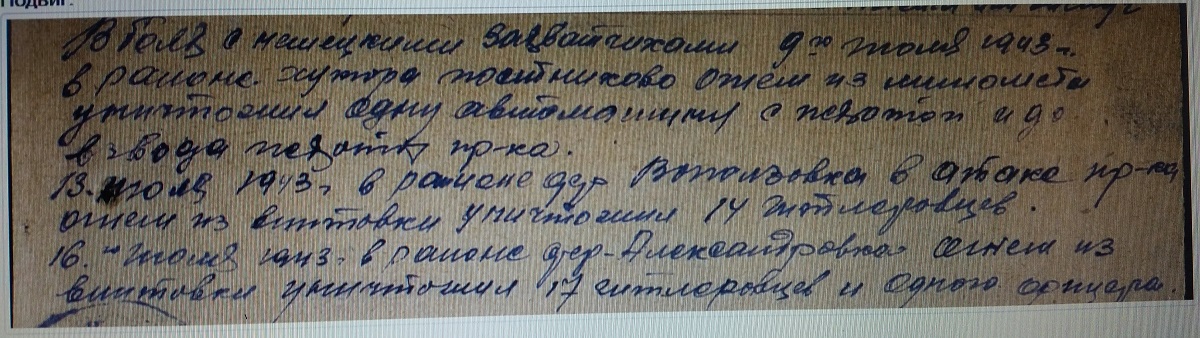 Подвиг:
В боях с немецкими захватчиками 9го июля 1943 г.
в районе хутора постниково огнем из миномета
уничтожил одну автомашину с пехотой и до
взвода пехоты пр-ка.
13. июля 1943 г. в районе дер в атаке пр-ка
огнем из винтовки уничтожил 14 гитлеровцев.
16. го июля 1943 г. в районе дер-Александровка огнем из
винтовки уничтожил 17 гитлеровцев и одного офицера.